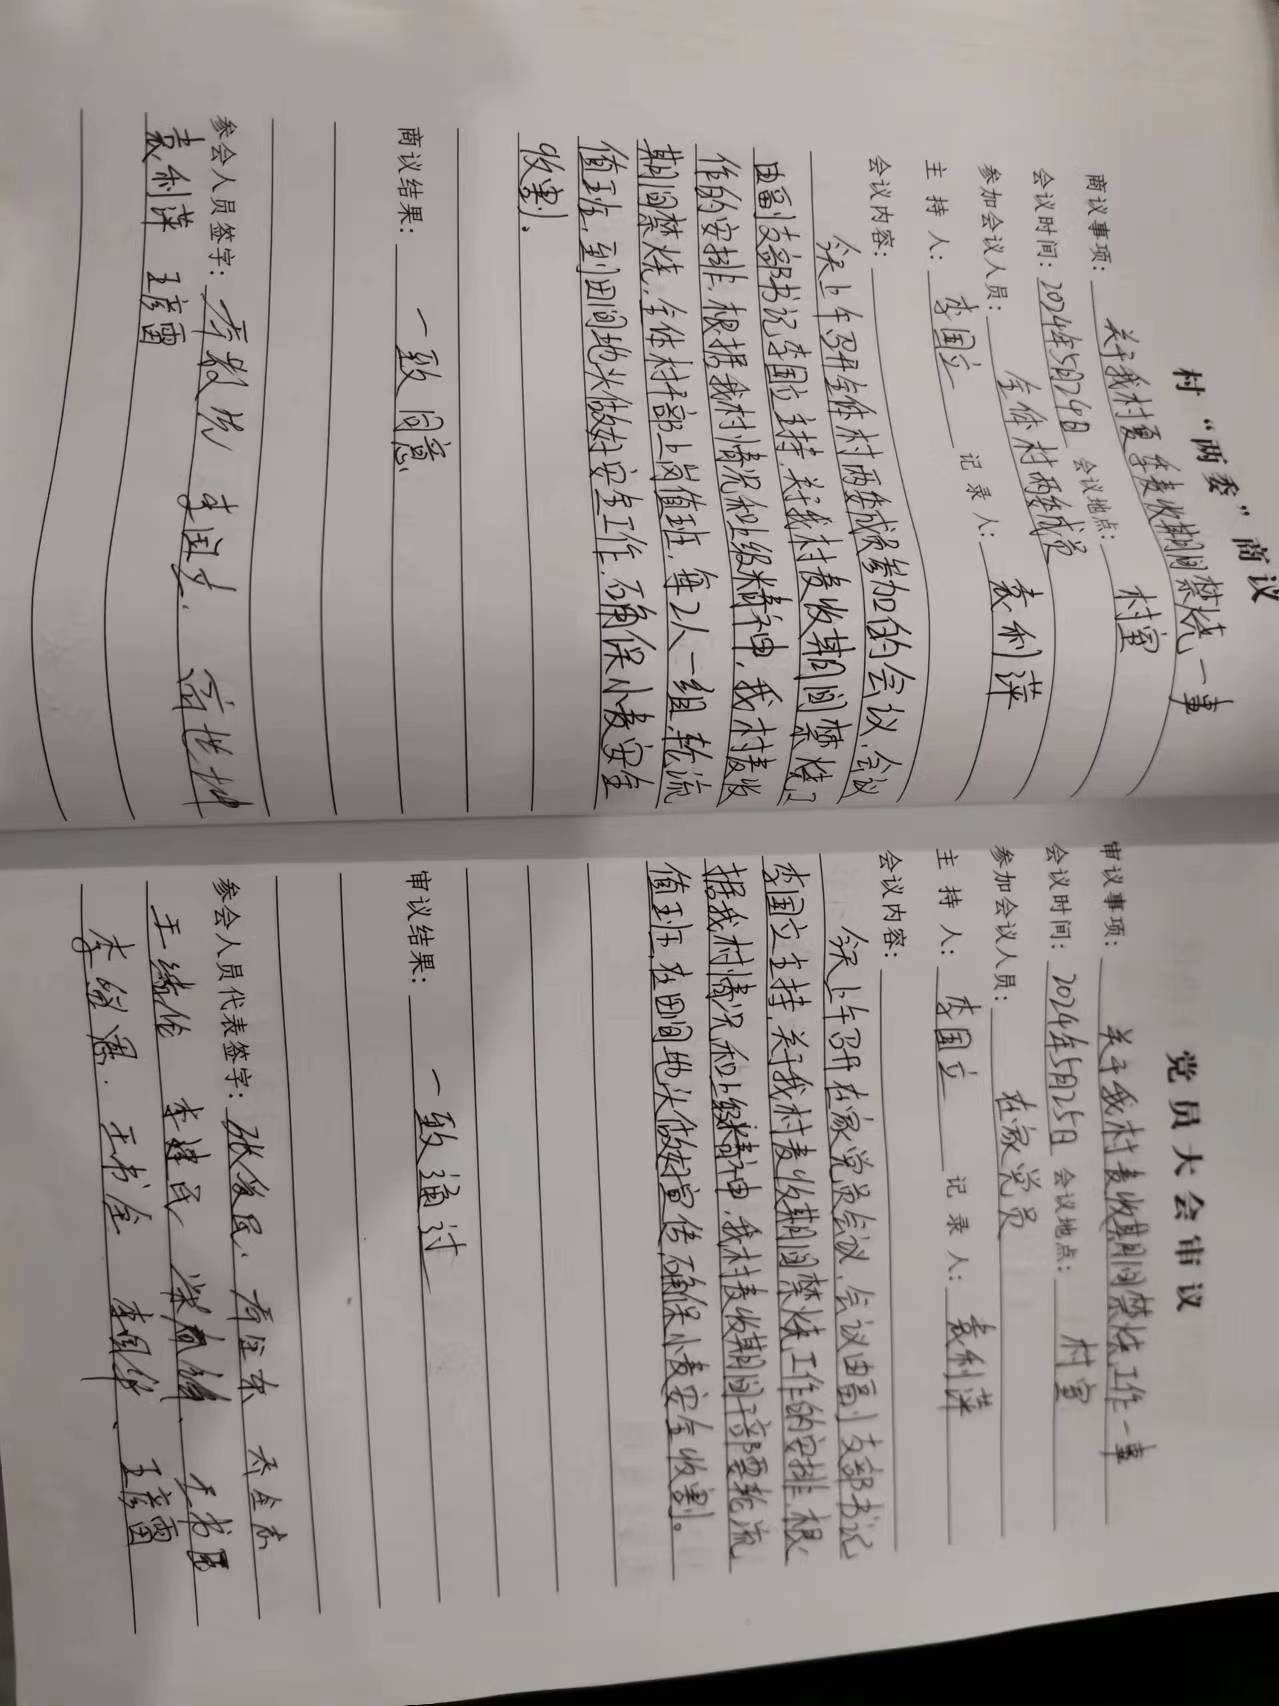 村“两委”商议
商议事项：关于我村夏季麦收期间禁烧一事
会议时间：2024年5月24日 会议地点：村室
参加会议人员：全体村两委成员
主持人：李国立 记录人：袁利萍
会议内容：
今天上午召开全体村两委成员参加的会议，会议
由副支部书记李国立主持，关于我村麦收期间禁烧工
作的安排，根据我村情况和上级精神，我村麦收
期间禁烧，全体村干部上岗值班，每2人一组，轮流
值班，到田间地头做好安全工作，确保小麦安全
收割。
商议结果：一致同意
参会人员签字：李国立
袁利萍 王彦雷
党员大会审议
审议事项：关于我村麦收期间禁烧工作一事
会议时间：2024年5月25日 会议地点：村室
参加会议人员：在家党员
主持人：李国立 记录人：袁利萍
会议内容：
今天上午召开在家党员会议，会议由副支部书记
李国立主持，关于我村麦收期间禁烧工作的安排，根
据我村情况和上级精神，我村麦收期间干部要轮流
值班，在田间地头做好宣传，确保小麦安全收割。
审议结果：一致通过
参会人员代表签字：张发民
李建民
王书全 王彦雷